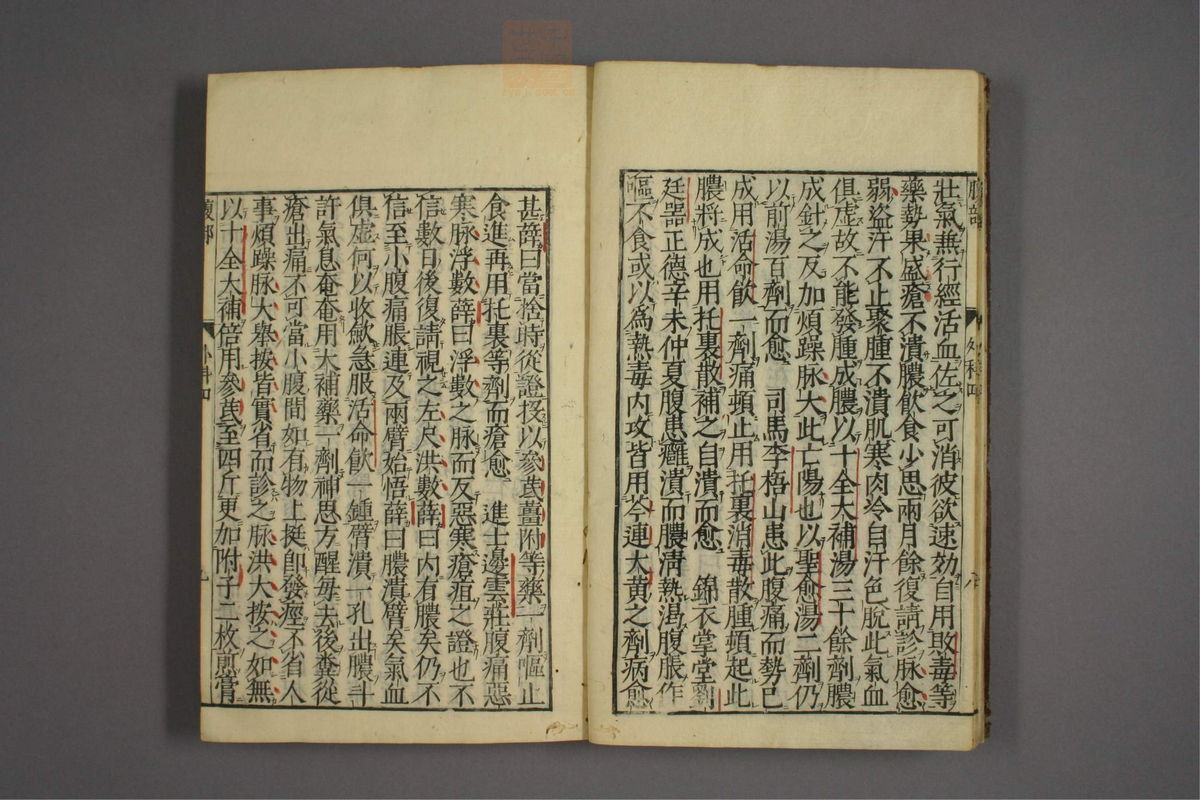 腹部　外科四　八
壯氣無行經活血佐之可消彼欲速効自用敗毒等
藥勢果盛瘡不潰膿飲食少思兩月餘復請診脉愈
弱盜汗不止聚腫不潰肌寒肉冷自汗色脫此氣血
俱虛故不能發腫成膿以十全大補湯三十餘劑膿
成針之反加煩躁脉大此亡陽也以聖愈湯二劑仍
以前湯百劑而愈　司馬李梧山患此腹痛而勢已
成用活命飲一劑痛頓止用托裏消毒散腫頓起此
膿將成也用托裏散補之自潰而愈　錦衣掌堂劉
廷器正德辛未仲夏腹患癰潰而膿淸熱渴腹脹作
嘔不食或以爲熱毒内攻皆用芩連大黃之劑病愈
甚薛曰當捨時從證投以參茋薑附等藥一劑嘔止
食進再用托裏等劑而瘡愈　進士邊雲莊腹痛惡
寒脉浮數薛曰浮數之脉而反惡寒瘡疽之證也不
信數日後復請視之左尺洪數薛曰内有膿矣仍不
信至小腹痛脹連及兩臀始悟薛曰膿潰臀矣氣血
俱虛何以收斂急服活命飲一鍾臀潰一孔出膿斗
許氣息奄奄用大補藥一劑神思方醒每去後糞從
瘡出痛不可當小腹間如有物上挺卽發痙不省人
事煩躁脉大舉按皆實省而診之脉洪大按之如無
以十全大補倍用參茋至四斤更加附子二枚煎膏
腹部　外科四　九